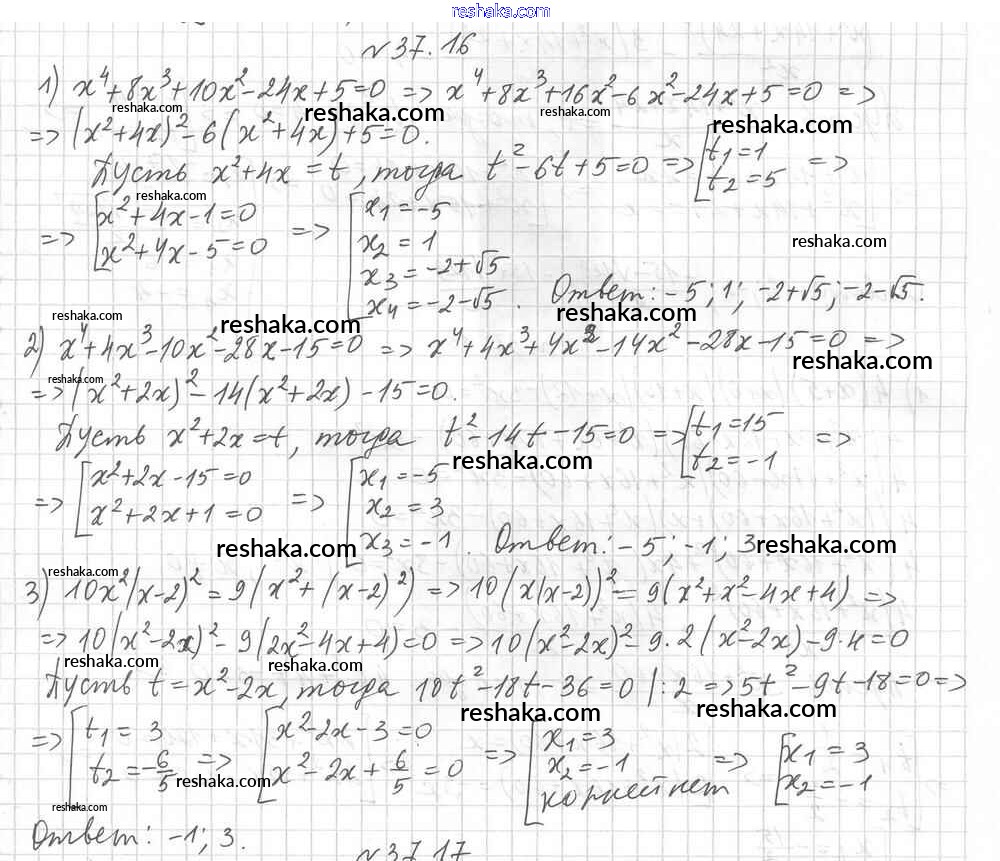 reshaka.com
N 37.16
1) x⁴+8x³+10x²-24x+5=0 => x⁴+8x³+16x²-6x²-24x+5=0 =>
reshaka.com reshaka.com reshaka.com
=> (x²+4x)²-6(x²+4x)+5=0.
Пусть x²+4x=t, тогда t²-6t+5=0 => [t₁=1 =>
t₂=5
reshaka.com
=> [x²+4x-1=0 => [x₁=-5
x²+4x-5=0 x₂=1
reshaka.com
x₃=-2+√5
x₄=-2-√5. Ответ: -5; 1; -2+√5; -2-√5.
reshaka.com reshaka.com reshaka.com
2) x⁴+4x³-10x²-28x-15=0 => x⁴+4x³+4x²-14x²-28x-15=0 =>
reshaka.com reshaka.com
=> (x²+2x)²-14(x²+2x)-15=0.
Пусть x²+2x=t, тогда t²-14t-15=0 => [t₁=15 =>
t₂=-1
reshaka.com
=> [x²+2x-15=0 => [x₁=-5
x²+2x+1=0 x₂=3
x₃=-1. Ответ: -5; -1; 3
reshaka.com reshaka.com
reshaka.com
3) 10x²(x-2)²=9(x²+(x-2)²) => 10(x(x-2))²=9(x²+x²-4x+4) =>
=> 10(x²-2x)²-9(2x²-4x+4)=0 => 10(x²-2x)²-9·2(x²-2x)-9·4=0
reshaka.com reshaka.com
Пусть t=x²-2x, тогда 10t²-18t-36=0 |:2 => 5t²-9t-18=0 =>
reshaka.com reshaka.com
=> [t₁=3 => [x²-2x-3=0 => [x₁=3 => [x₁=3
t₂=-6/5 x²-2x+6/5=0 x₂=-1 x₂=-1
reshaka.com
корней нет
reshaka.com
Ответ: -1; 3.
N 37.17